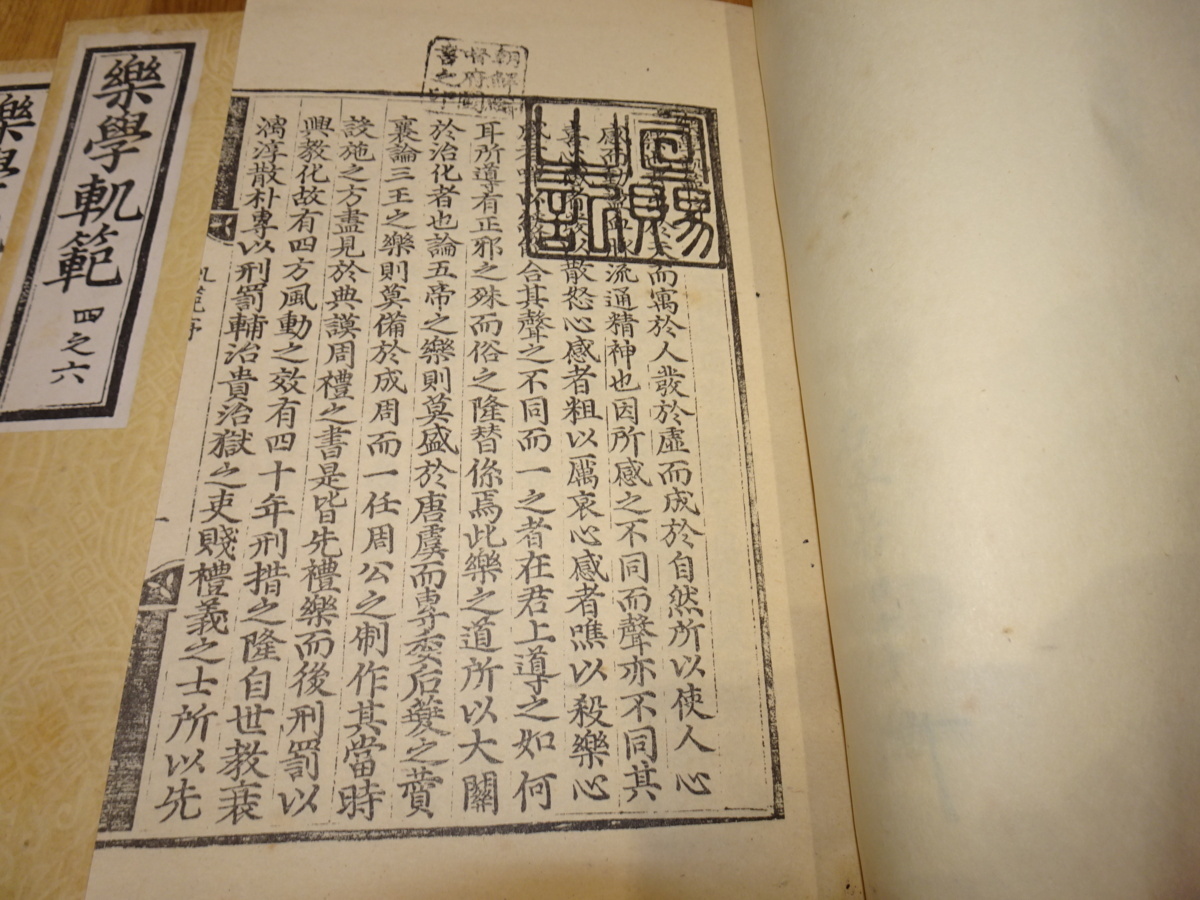 樂學軌範 四之六
樂學
朝鮮總
督府圖
書之印
宣賜
之記
而寓於人發於虛而成於自然所以使人心
感而動 流通精神也因所感之不同而聲亦不同其
喜心 者 以散怒心感者粗以厲哀心感者噍以殺樂心
合其聲之不同而一之者在君上導之如何
耳所導有正邪之殊而俗之隆替係焉此樂之道所以大關
於治化者也論五帝之樂則莫盛於唐虞而專委后夔之贊
襄論三王之樂則莫備於成周而一任周公之制作其當時
設施之方盡見於典謨周禮之書是皆先禮樂而後刑罰以
興教化故有四方風動之效有四十年刑措之隆自世教衰
漓淳散朴專以刑罰輔治貴治獄之吏賤禮義之士所以先
軌範序
一